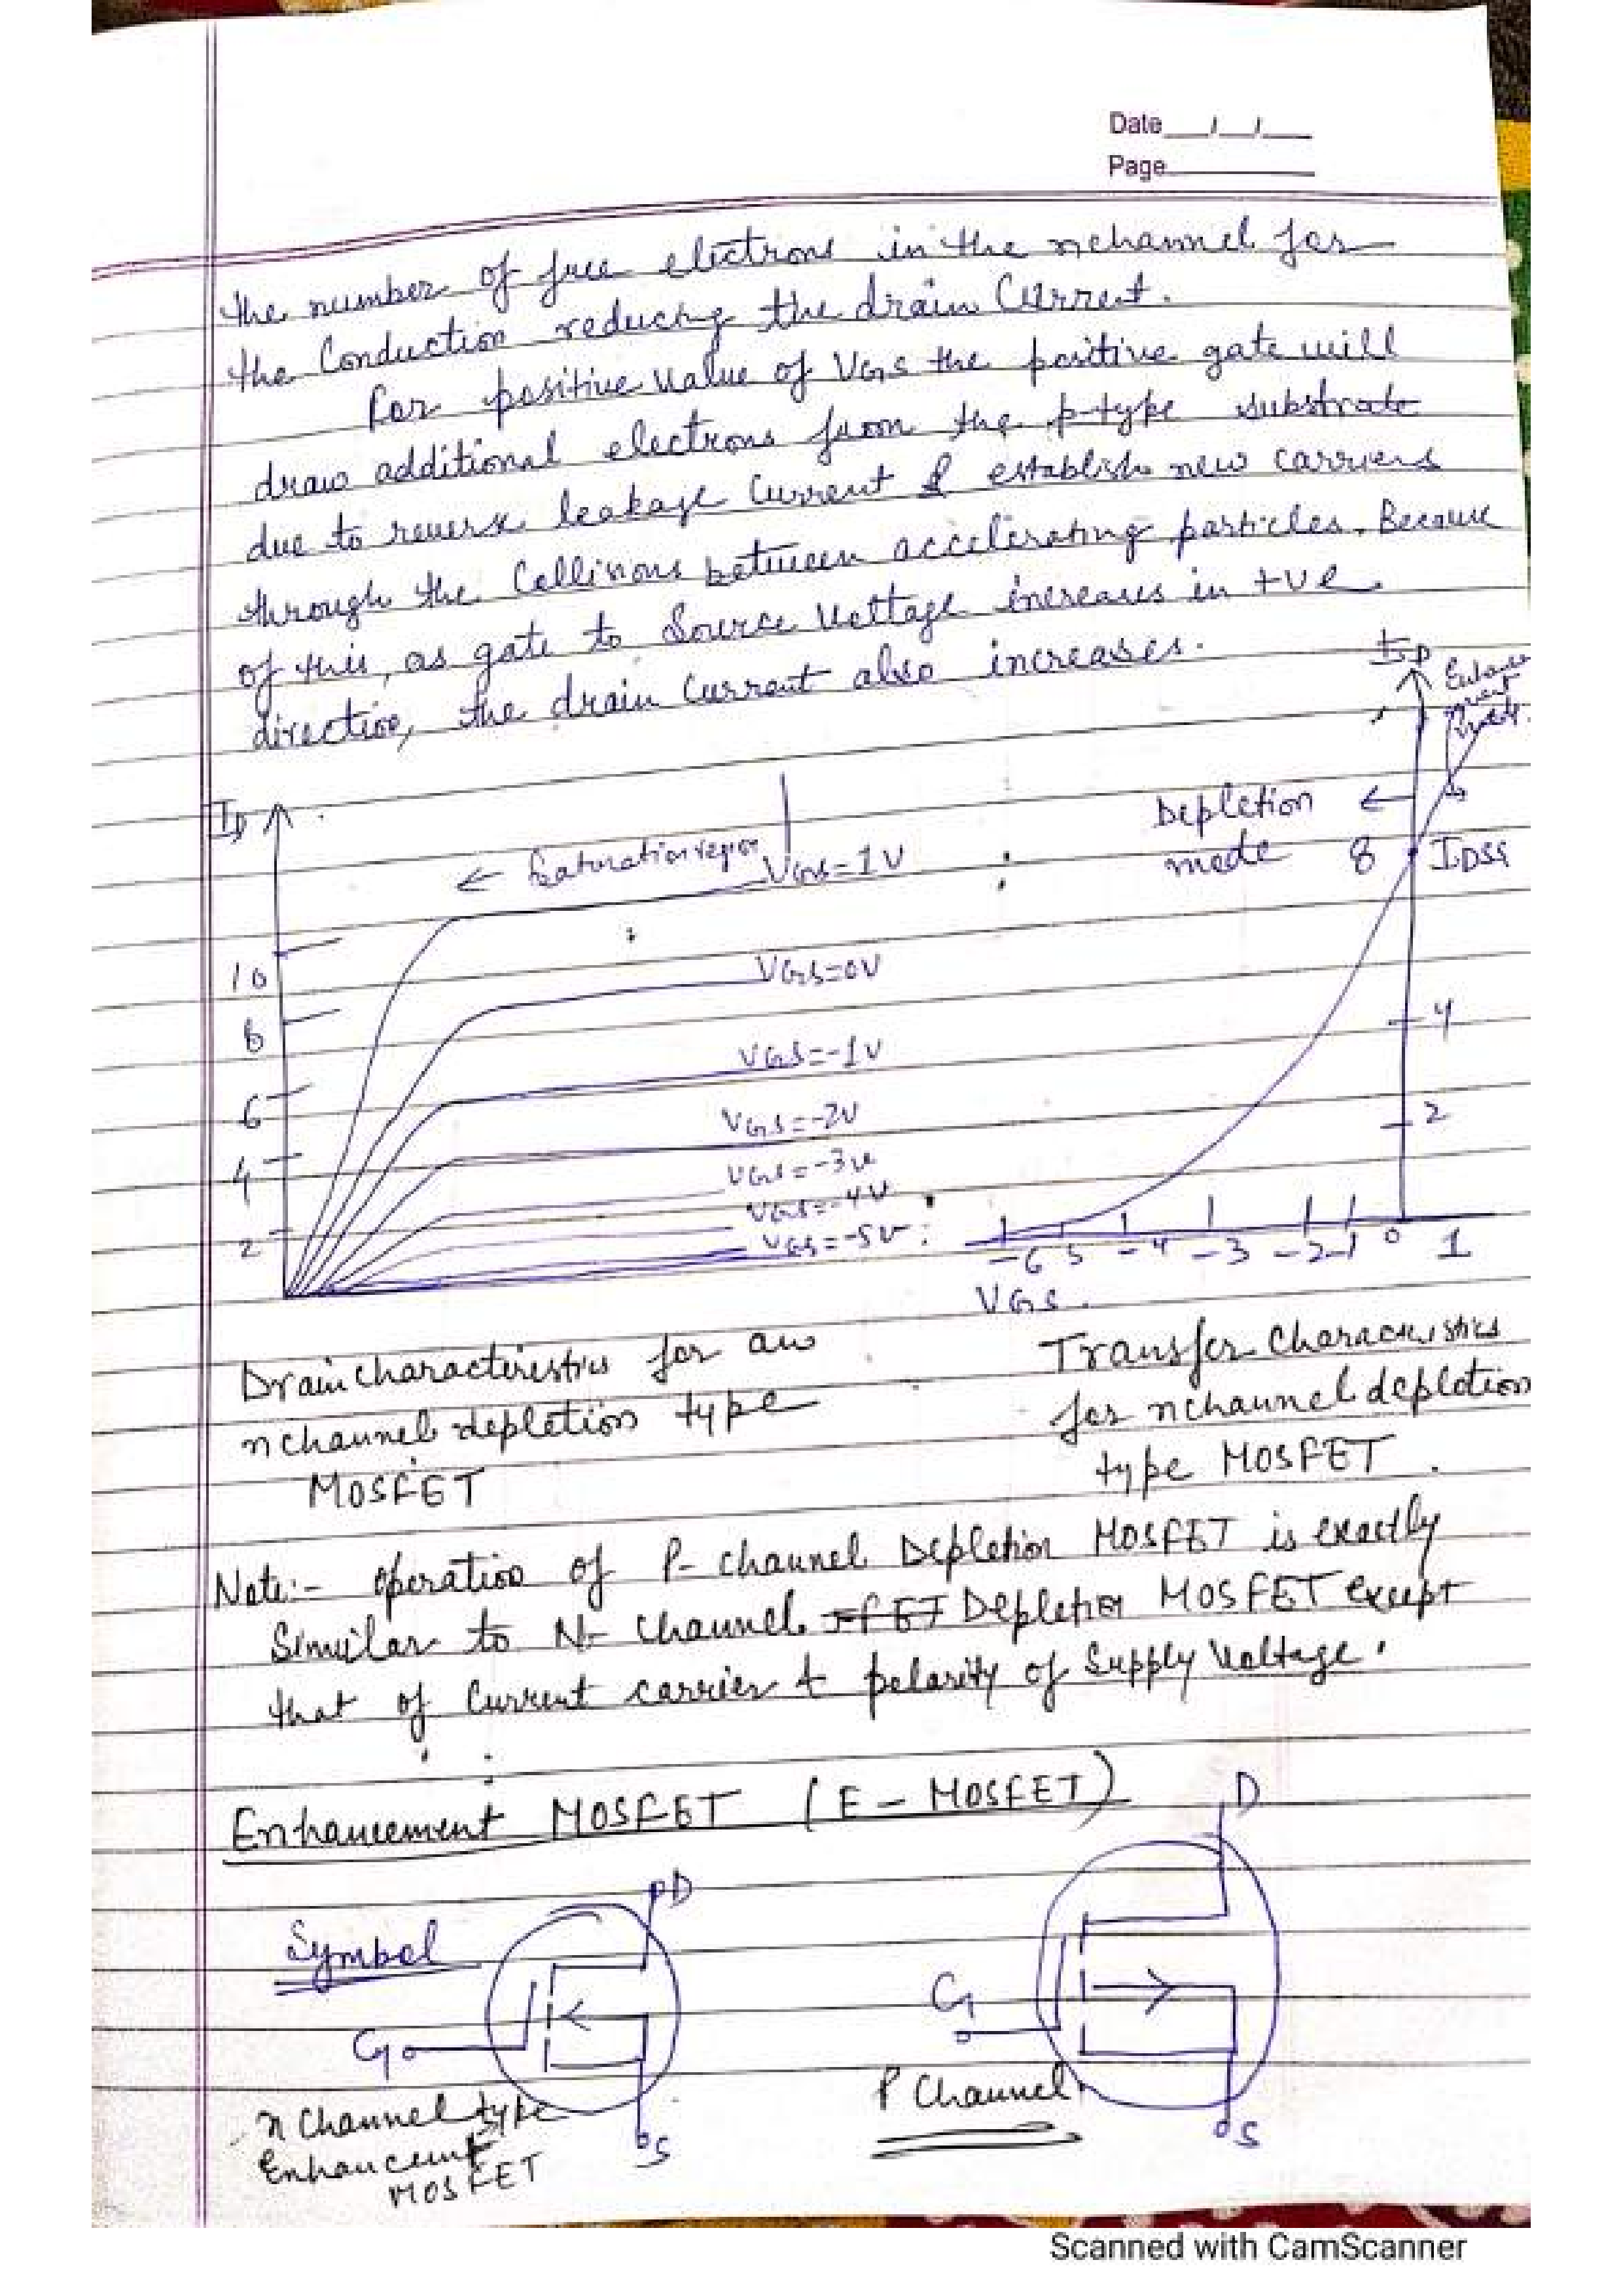 Date __/__/__
Page
the number of free electrons in the nchannel for
the Conduction reducing the drain Current.
For positive value of VGS the positive gate will
draw additional electrons from the p-type substrate
due to reverse leakage Current & establish new carriers
through the Collisions between accelerating particles. Because
of this, as gate to Source Voltage increases in +ve
direction, the drain Current also increases.
ID
Enhancement
ID
← Saturation region
VGS=1V
Depletion ←
mode 8 IDSS
10
VGS=0V
8
4
VGS=-1V
6
2
VGS=-2V
4
VGS=-3V
VGS=-4V
2
VGS=-5V
-6 5 -4 -3 -2 -1 0 1
VGS.
Drain characteristics for an
n channel depletion type
MOSFET
Transfer Characteristics
for n channel depletion
type MOSFET.
Note:- operation of P- channel Depletion MOSFET is exactly
Similar to N- Channel JFET Depletion MOSFET except
that of Current carrier & polarity of Supply Voltage.
Enhancement MOSFET (E - MOSFET)
Symbol
D
G
S
n Channel type
Enhancemt
MOSFET
D
G
P Channel
S
Scanned with CamScanner